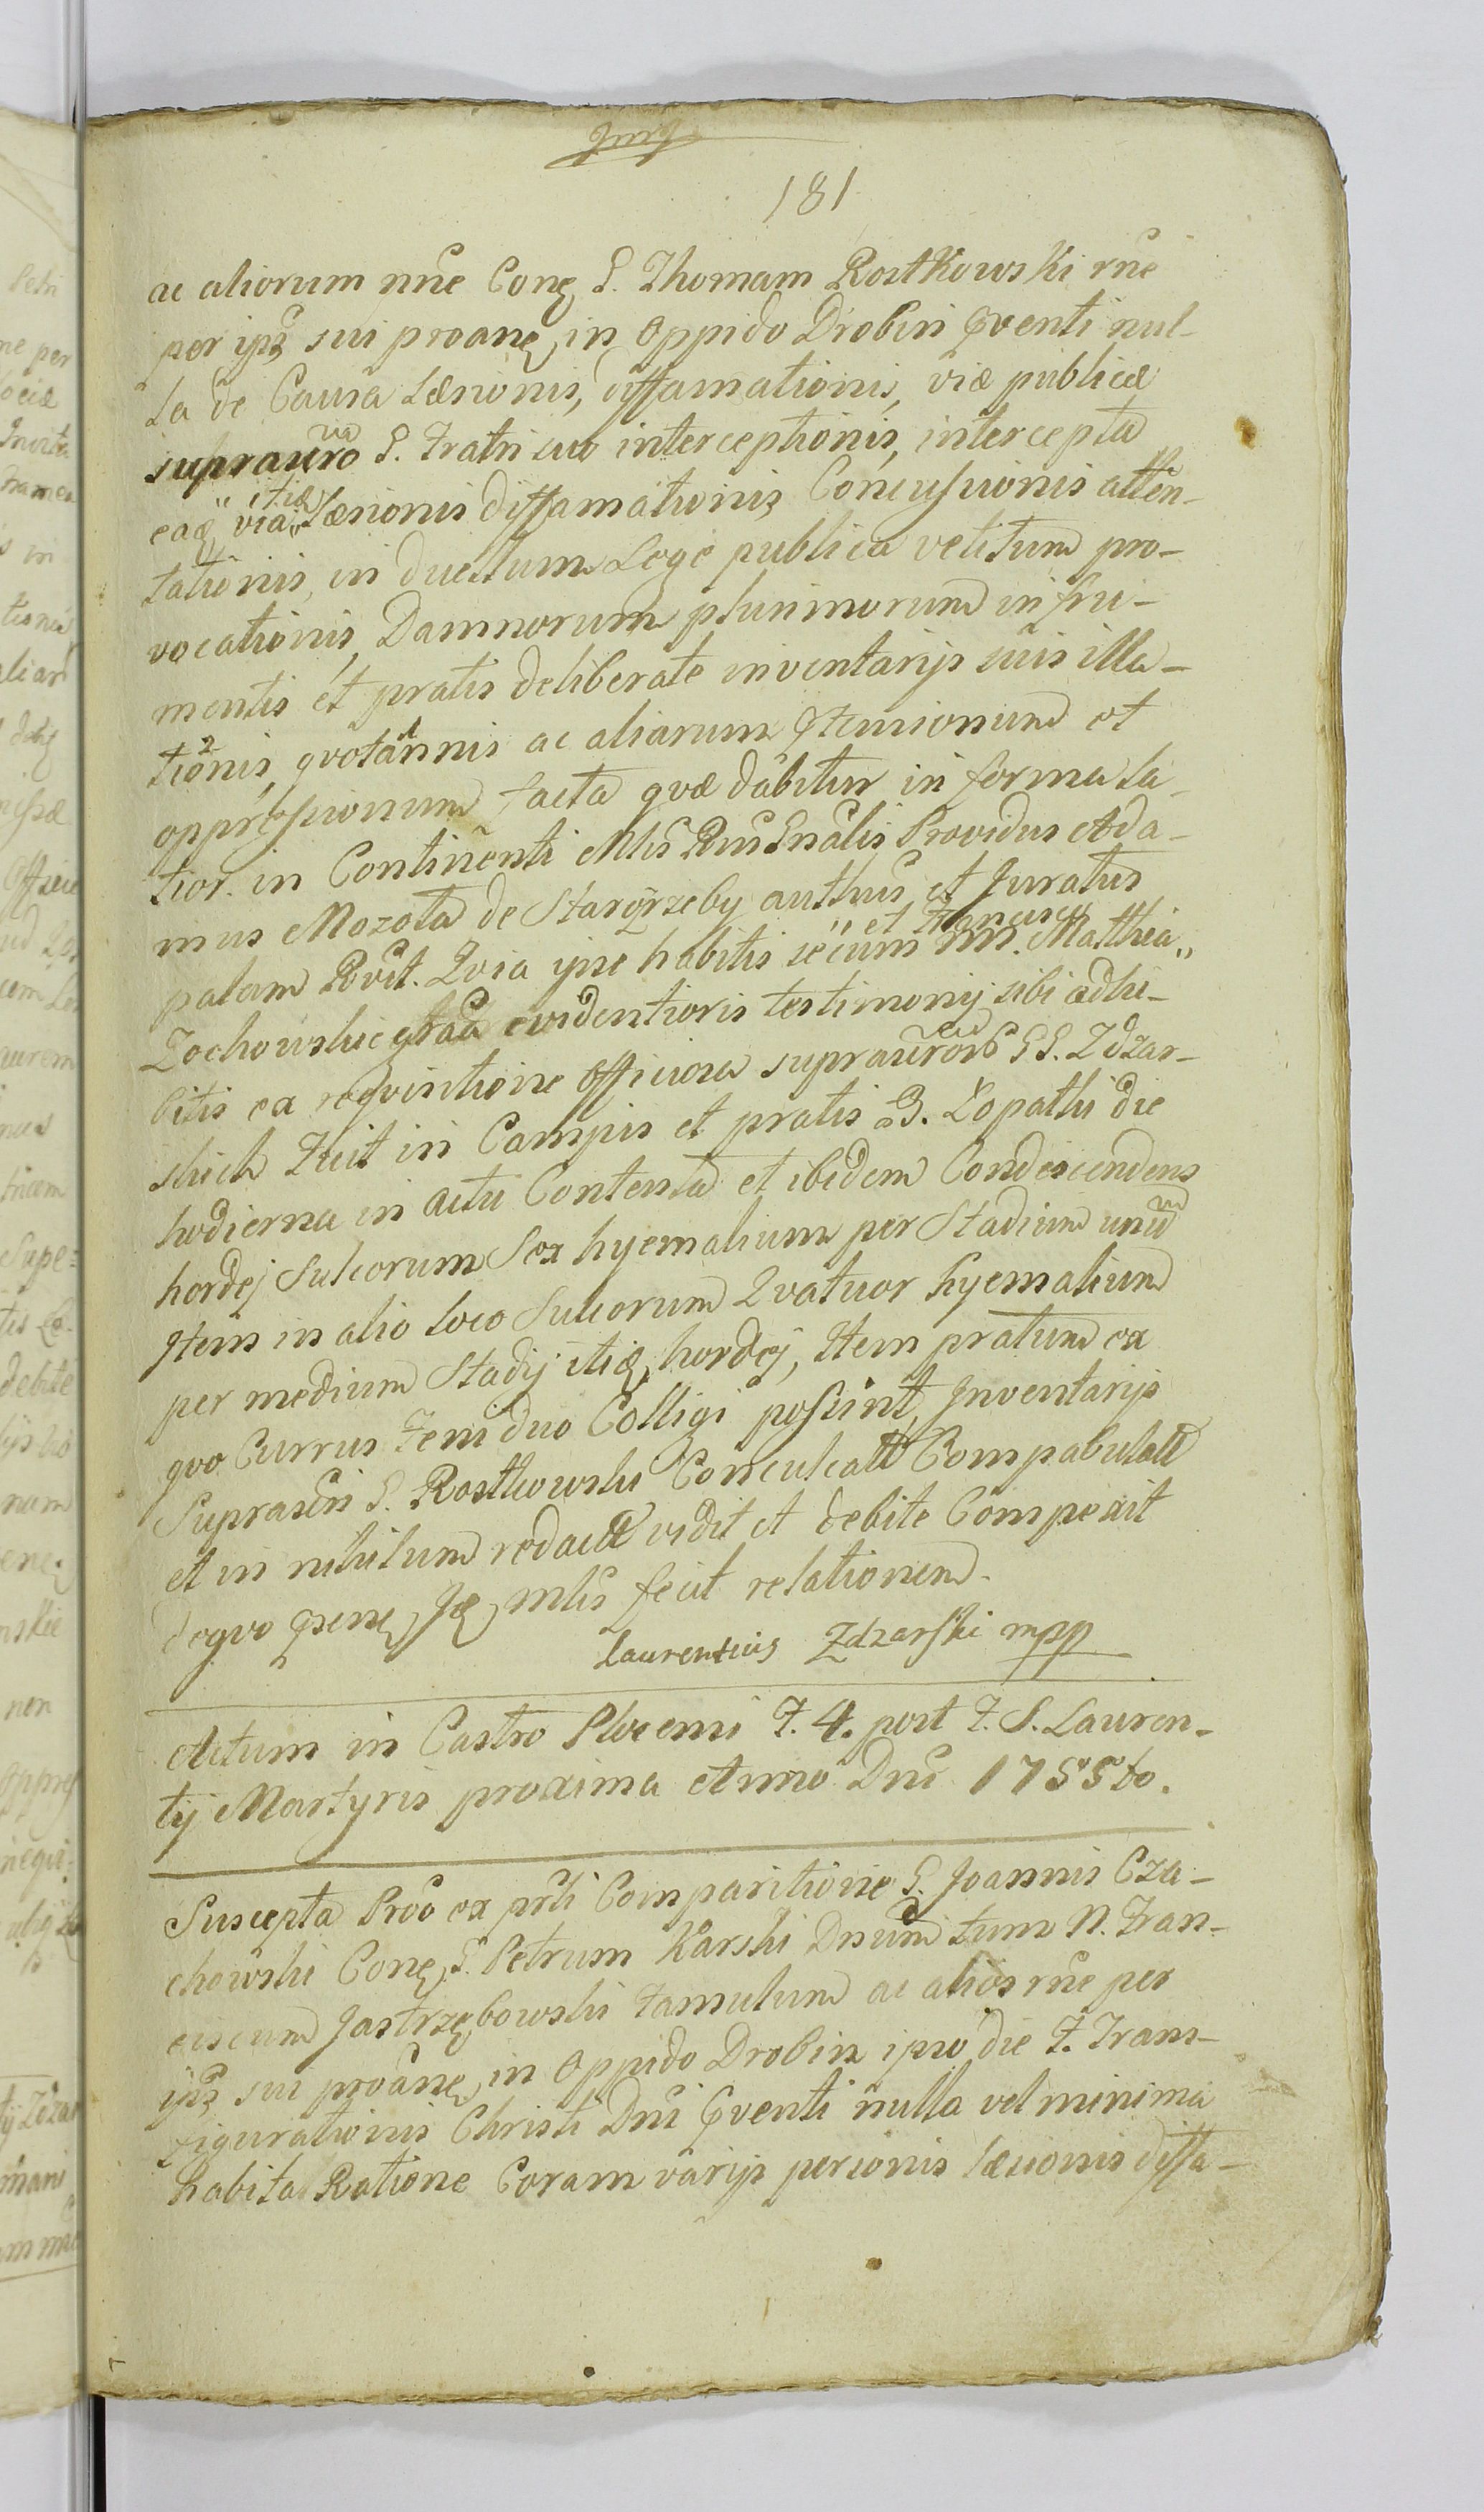 181
ac aliorum nne Conq G. Thomam Rostkowski rne
per ipz sui proanq in Oppido Drobin qventi nul-
la de Causa Læsionis, diffamationis, viæ publicæ
suprascro G. Fratri suo interceptionis, intercepta
eaq via itiq Læsionis diffamationis Concussionis atten-
tationis, in duellum Lege publica vetitum pro-
vocationis, Damnorum plurimorum in fru-
mentis et pratis deliberate inventarijs suis illa-
tionis, qvotannis ac aliarum qtensionum et
oppressionum facta qvæ dabitur in forma la-
tior. in Continenti Mlis Rni Gnalis Providus Ada-
mus Mozota de Starozreby authus et Juratus
palam Rvit. Qvia ipse habitis secum nn. Matthia et Francisco
Zochowskie gtaa evidentioris testimonij sibi adhi-
bitis ex reqvisitione Officiosa suprascrorum GG. Zdzar-
skich Fuit in Campis et pratis B. Lopatki die
hodierna in actu Contenta et ibidem Condescendens
hordej Sulcorum Sex hyemalium per Stadium unum
Item in alio loco Sulcorum Qvatuor hyemalium
per medium Stadij itiq hordej, Item pratum ex
qvo Currus Feni duo Colligi possunt, Inventarijs
Suprascri G. Rostkowski Conculcata Compabulata
et in nihilum redacta vidit et debite Comperit
deqvo qsens Jq mlis fecit relationem.
Laurentius Zdzarski mpp
Actum in Castro Plocensi F. 4. post F. S. Lauren-
tij Martyris proxima Anno Dni 1755to.
Suscepta Proo ex prti Comparitione G. Joannis Cza-
chowski Conq G. Petrum Karski Dnum tum N. Fran-
ciscum Jastrzębowski Famulum ac alios rne per
ipz sui proanq in Oppido Drobin ipso die F. Trans-
figurationis Christi Dni qventi nulla vel minima
habita Ratione Coram varijs personis læsionis diffa-